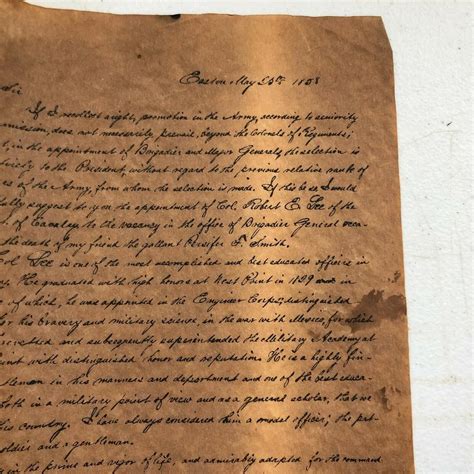 Easton May 25th 1858
Sir
If I recollect aright, promotion in the Army, according to seniority
mmission, does not necessarily prevail, beyond the Colonels of Regiments;
t, in the appointment of Brigadier and Major Generals, the selection is
tirely to the President, without regard to the previous relative rank of
es of the Army, from whom the selection is made. If this be so I would
fully suggest to you the appointment of Col. Robert E. Lee of the
of Cavalry to the vacancy in the office of Brigadier General occa
the death of my friend the gallant Persifer F. Smith.
Col Lee is one of the most accomplished and best educated officers in
y. He graduated with high honors at West Point in 1829 and in
of which, he was appointed in the Engineer Corps; distinguished
for his bravery and military science, in the war with Mexico, for which
revetted and subsequently superintended the Military Academy at
int with distinguished honor and reputation. He is a highly fin
tleman in his manners and deportment and one of the best educa
both in a military point of view and as a general scholar, that we
his country. I have always considered him a model officer; the pat
soldier and a gentleman.
in the prime and vigor of life, and admirably adapted for the command